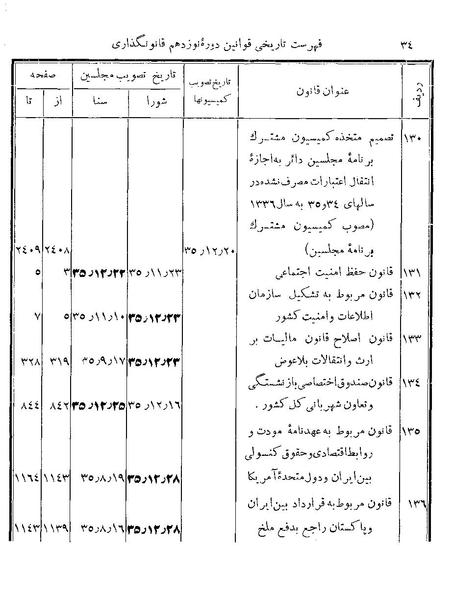 ۳۴ فهرست تاریخی قوانین دورهٔ نوزدهم قانونگذاری
ردیف عنوان قانون تاریخ تصویب کمیسیونها تاریخ تصویب مجلسین صفحه
شورا سنا از تا
۱۳۰ تصمیم متخذه کمیسیون مشترک
برنامهٔ مجلسین دائر به اجازهٔ
انتقال اعتبارات مصرف نشده در
سالهای ۳۴ و ۳۵ به سال ۱۳۳۶
(مصوب کمیسیون مشترک
برنامهٔ مجلسین) ۳۵٫۱۲٫۲۰ ۲۴۰۸ ۲۴۰۹
۱۳۱ قانون حفظ امنیت اجتماعی ۳۵٫۱۱٫۲۳ ۳۵٫۱۲٫۲۲ ۳ ۵
۱۳۲ قانون مربوط به تشکیل سازمان
اطلاعات و امنیت کشور ۳۵٫۱۲٫۲۳ ۳۵٫۱۱٫۱۰ ۵ ۷
۱۳۳ قانون اصلاح قانون مالیات بر
ارث و انتقالات بلاعوض ۳۵٫۱۲٫۲۳ ۳۵٫۹٫۱۷ ۳۱۹ ۳۲۸
۱۳۴ قانون صندوق اختصاصی بازنشستگی
و تعاون شهربانی کل کشور . ۳۵٫۱۲٫۱۶ ۳۵٫۱۲٫۲۵ ۸۴۲ ۸۴۴
۱۳۵ قانون مربوط به عهدنامهٔ مودت و
روابط اقتصادی و حقوق کنسولی
بین ایران و دول متحدهٔ آمریکا ۳۵٫۱۲٫۲۸ ۳۵٫۸٫۱۹ ۱۱۴۳ ۱۱۶۴
۱۳۶ قانون مربوط به قرارداد بین ایران
و پاکستان راجع بدفع ملخ ۳۵٫۱۲٫۲۸ ۳۵٫۸٫۱۶ ۱۱۳۹ ۱۱۴۳